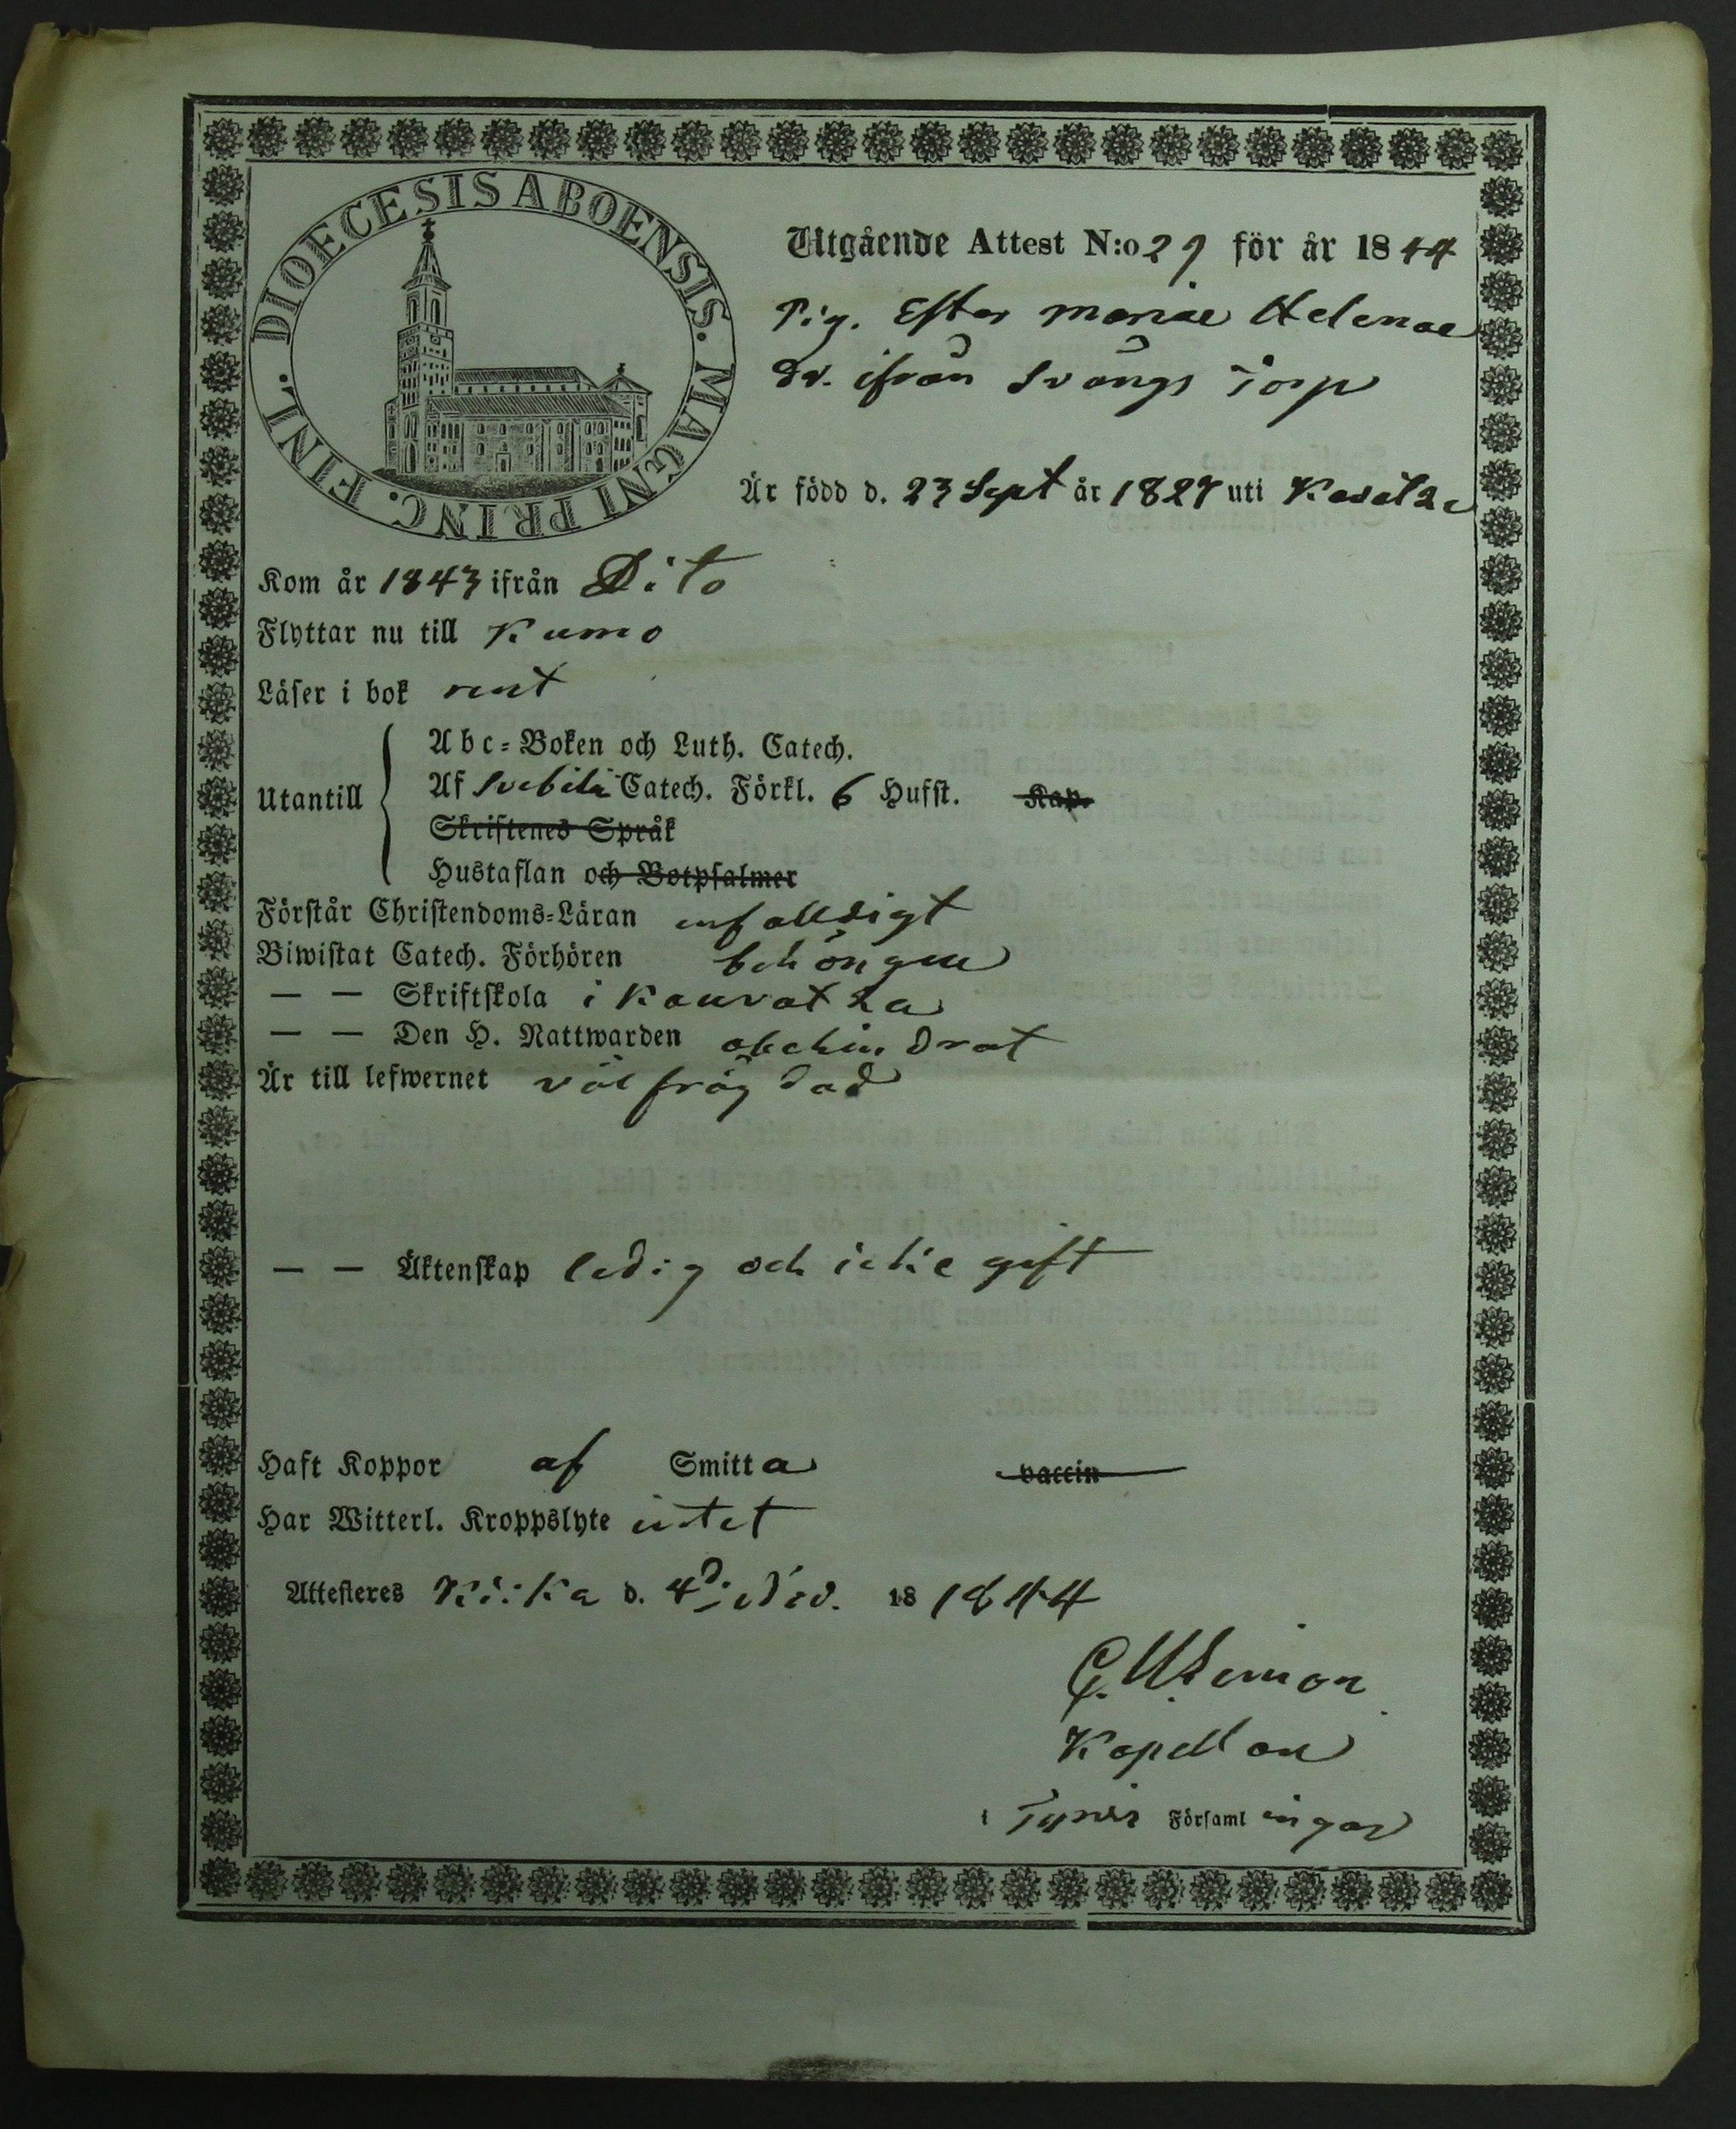 DIOECESIS ABOENSIS. MAGNI PRINC. FINL.
Utgående Attest N:o 29 för år 1844
Pig. Ester Mariae Helenae
dr. ifrån Svängs Torp
Är född d. 23 Sept år 1827 uti
Kom år 1843 ifrån Dito
Flyttar nu till Kumo
Läser i bok rent
Utantill
Abc-Boken och Luth. Catech.
Af Svebilii Catech. Förkl. 6 Hufst. Kap.
Skriftenes Språk
Hustaflan och Botpsalmer
Förstår Christendoms-Läran enfalldigt
Biwistat Catech. Förhören behörigen
— — Skriftskola i Kauvatza
— — Den H. Nattwarden obehindrat
Är till lefwernet väl frägdad
— — Äktenskap ledig och icke gift
Haft Koppor af Smitta vaccin
Har Witterl. Kroppslyte intet
Attesteres Kiika d. 4 18 1844
Kapellan
i Tyrvis Församlingar